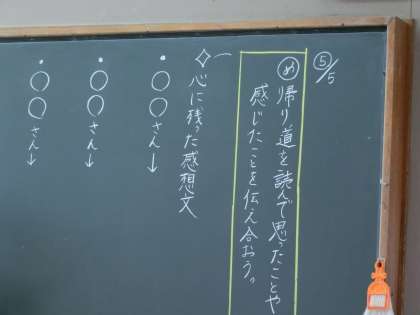 ⑤/5
め 帰り道を読んで思ったことや
感じたことを伝え合おう。
心に残った感想文
・○○さん↓
・○○さん↓
・○○さん↓